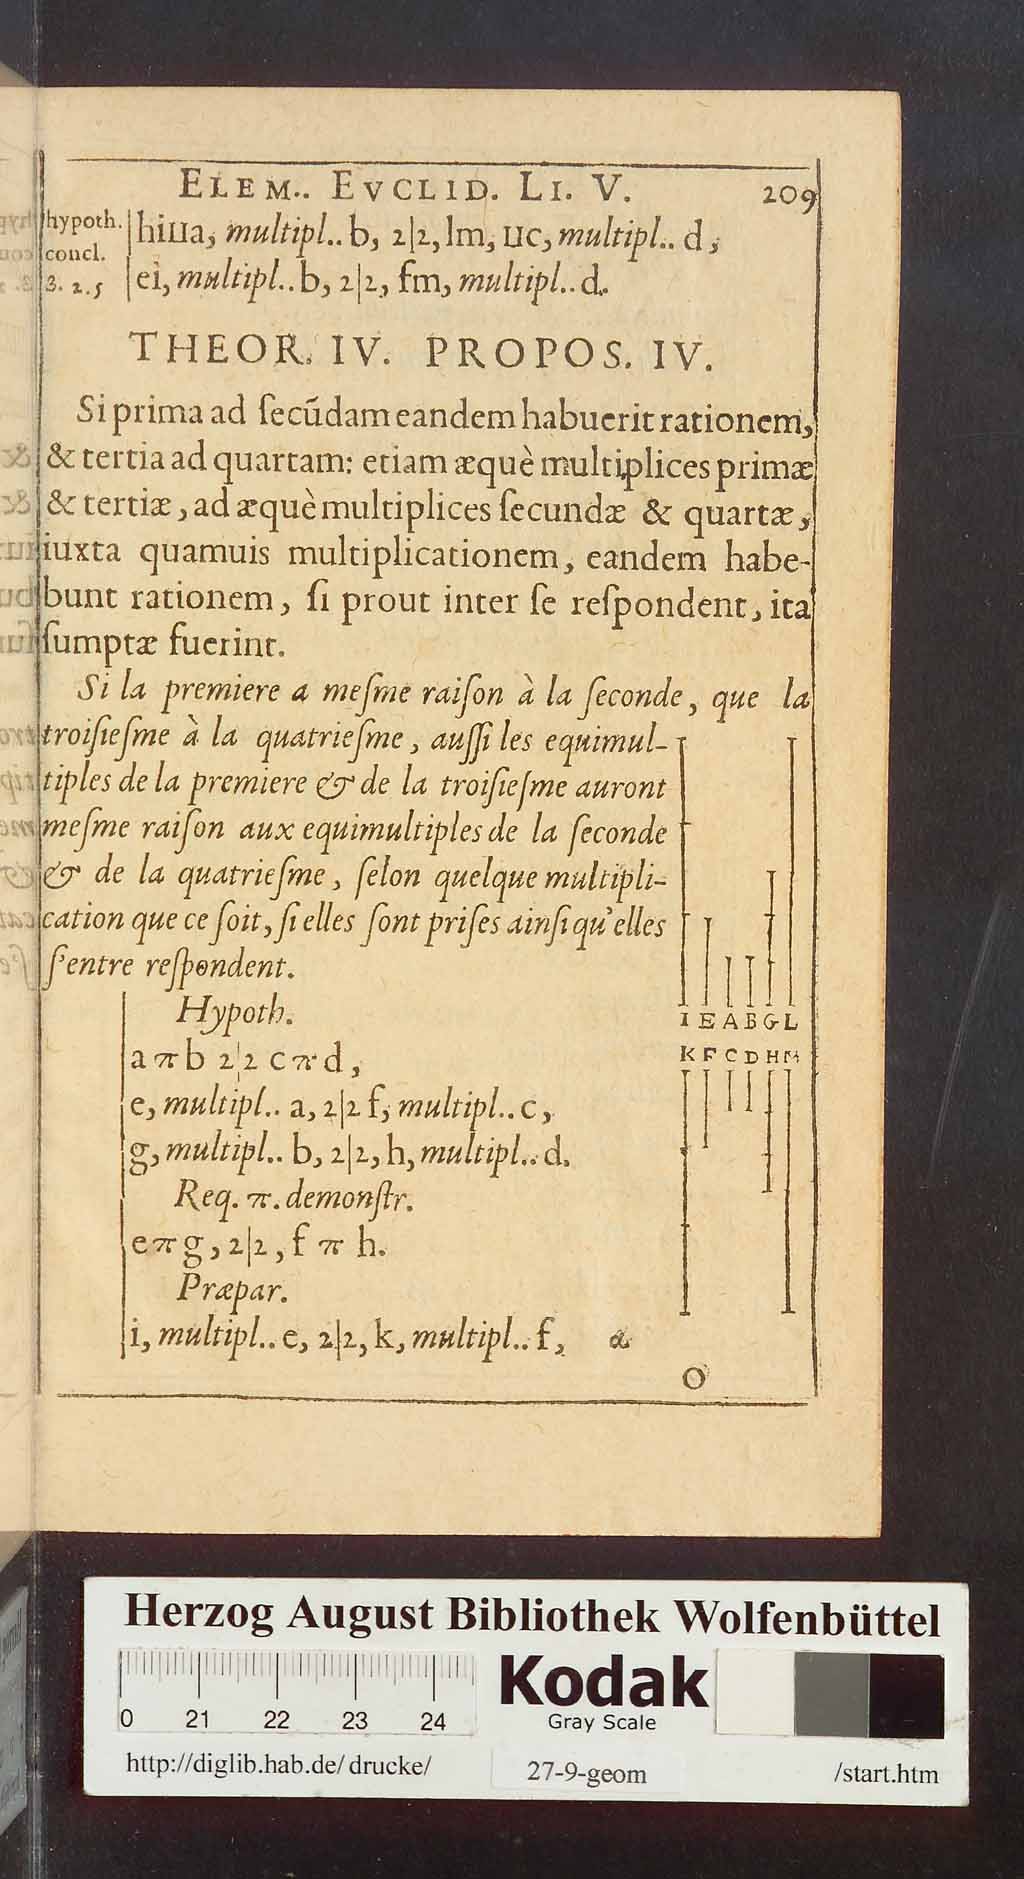 ELEM.. EVCLID. LI. V. 209
hypoth. hiııa, multipl.. b, 2|2, lm, ııc, multipl.. d,
concl.
3. 2. 5 ei, multipl.. b, 2|2, fm, multipl.. d.
THEOR. IV. PROPOS. IV.
Si prima ad ſecũdam eandem habuerit rationem,
& tertia ad quartam: etiam æquè multiplices primæ
& tertiæ, ad æquè multiplices ſecundæ & quartæ,
iuxta quamuis multiplicationem, eandem habe-
bunt rationem, ſi prout inter ſe reſpondent, ita
ſumptæ fuerint.
Si la premiere a meſme raiſon à la ſeconde, que la
troiſieſme à la quatrieſme, auſſi les equimul-
tiples de la premiere & de la troiſieſme auront
meſme raiſon aux equimultiples de la ſeconde
& de la quatrieſme, ſelon quelque multipli-
cation que ce ſoit, ſi elles ſont priſes ainſi qu'elles
ſ'entre reſpondent.
Hypoth.
a π b 2|2 c π d,
e, multipl.. a, 2|2 f, multipl.. c,
g, multipl.. b, 2|2, h, multipl.. d.
Req. π. demonſtr.
e π g, 2|2, f π h.
Præpar.
i, multipl.. e, 2|2, k, multipl.. f, &
O
I E A B G L
K F C D H M
Herzog August Bibliothek Wolfenbüttel
0 21 22 23 24
Kodak
Gray Scale
http://diglib.hab.de/drucke/ 27-9-geom /start.htm